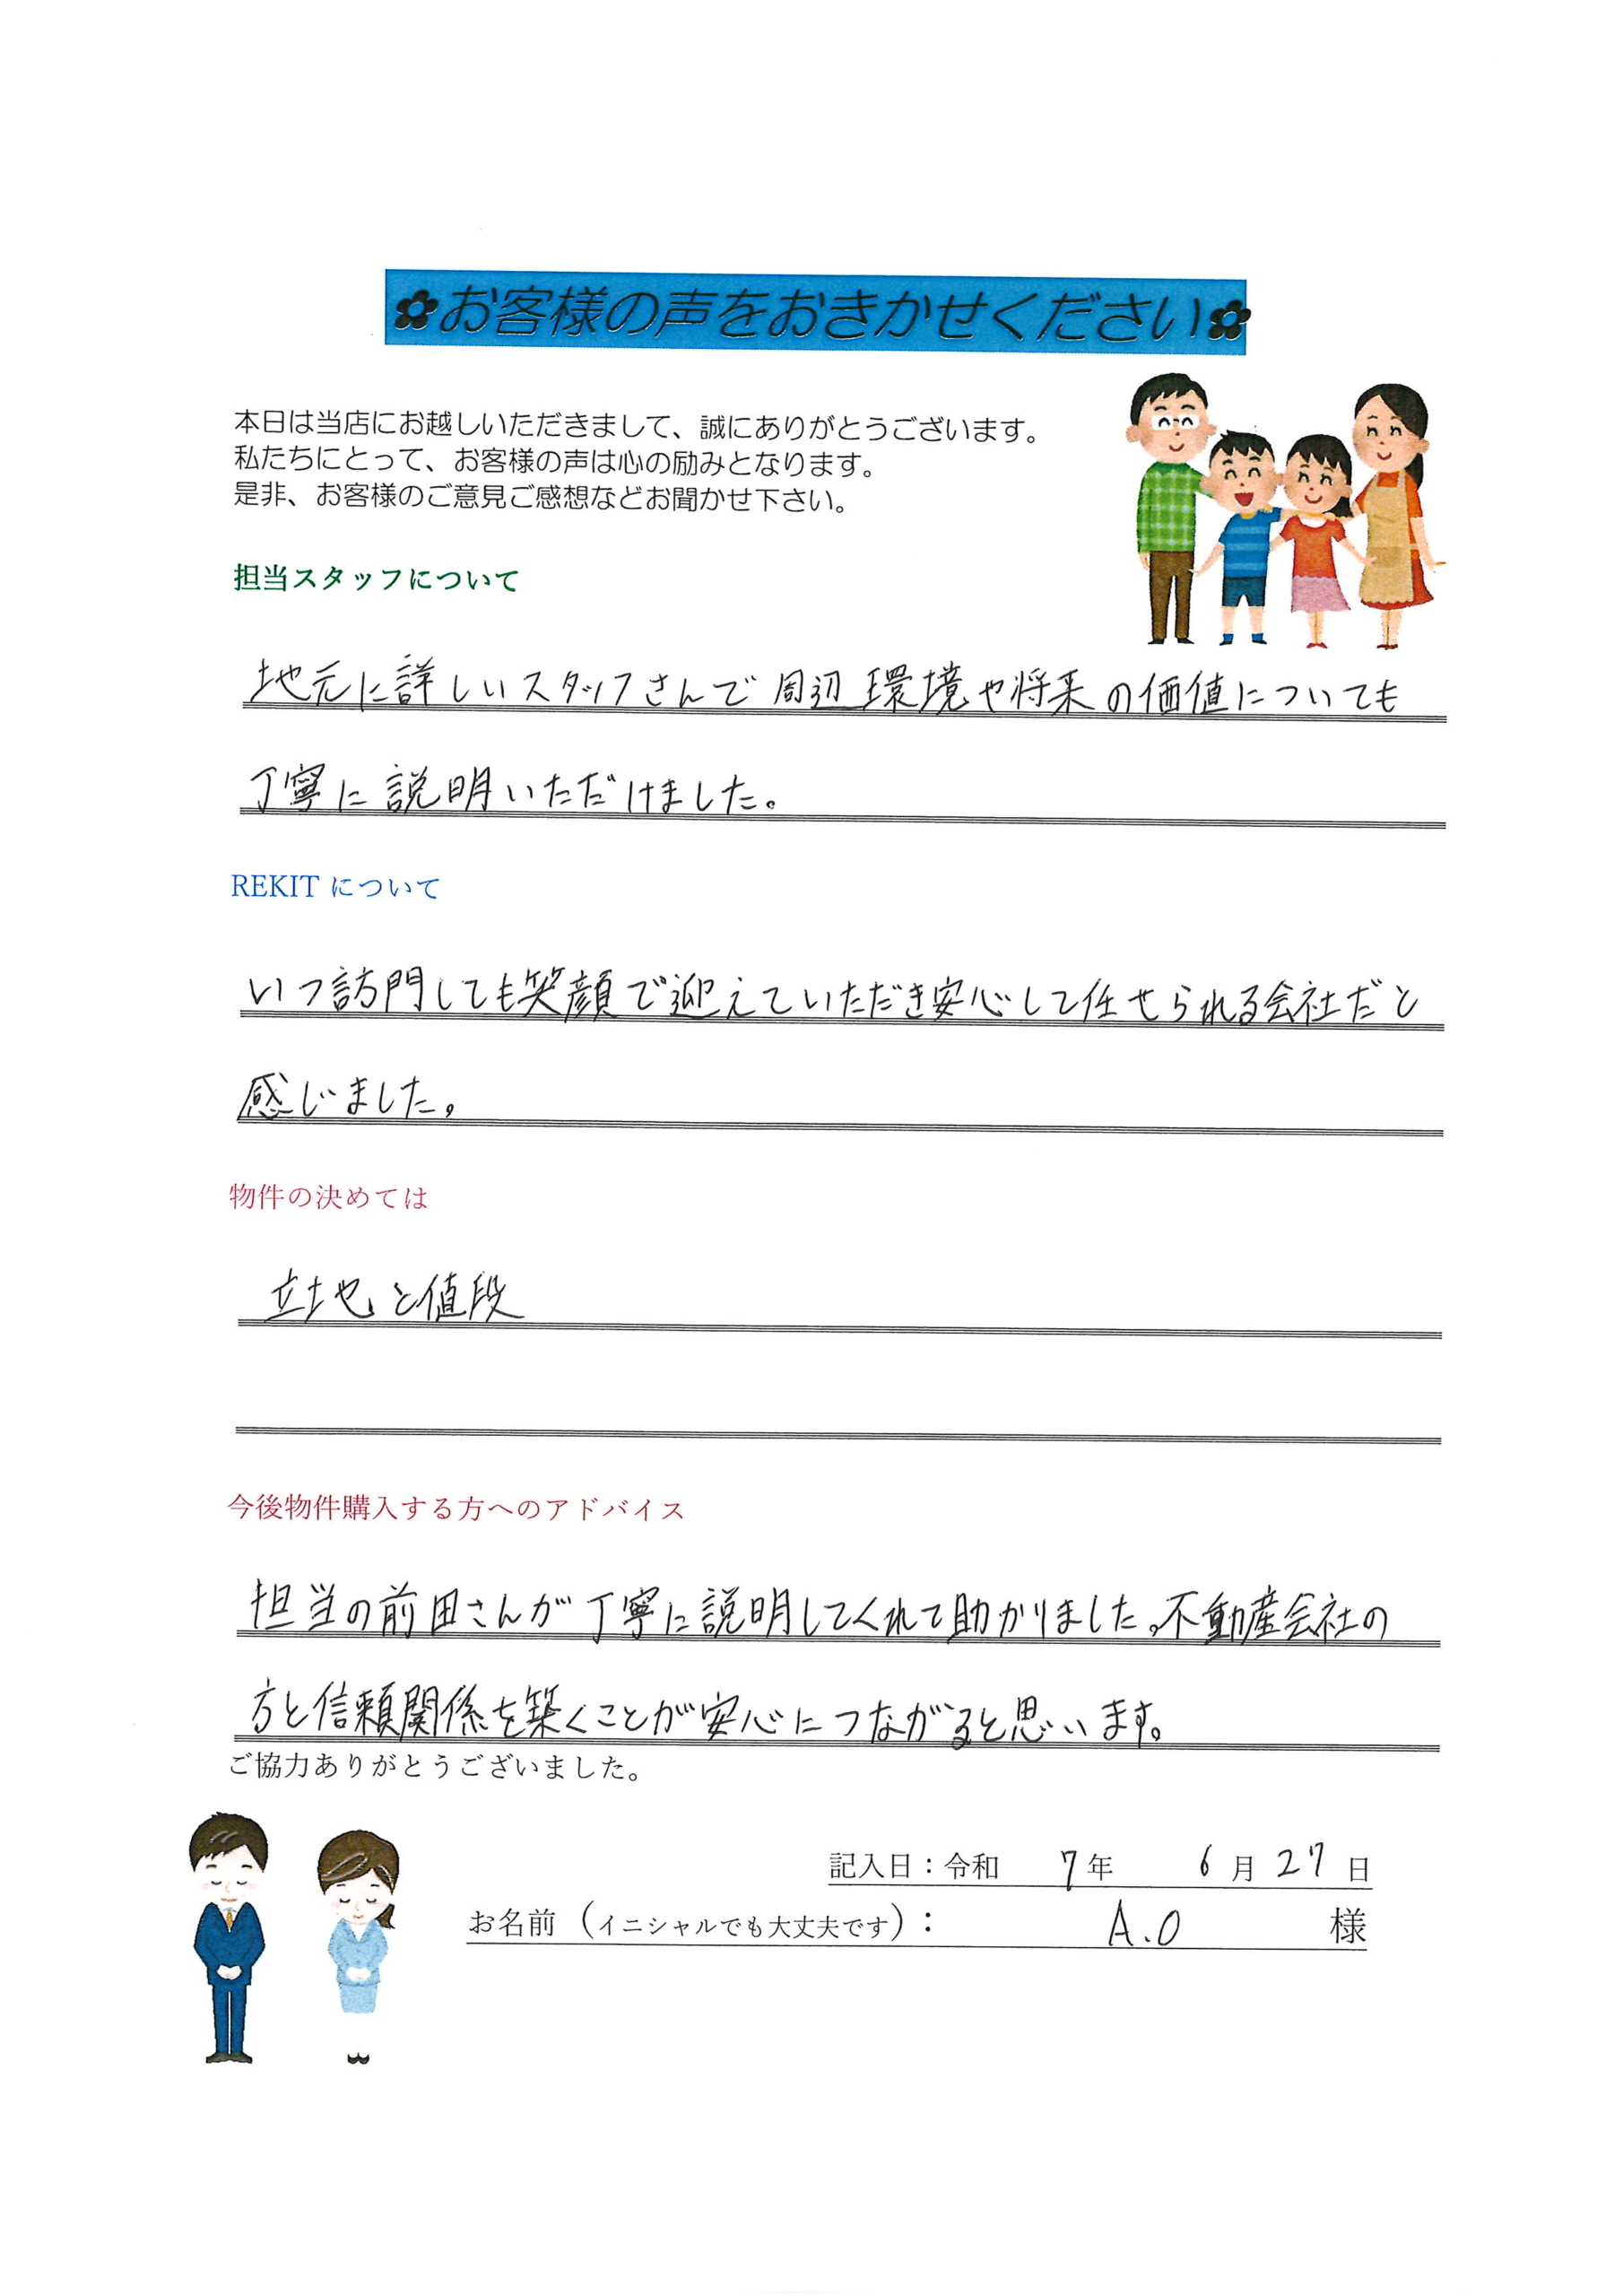 ✿お客様の声をおきかせください✿
本日は当店にお越しいただきまして、誠にありがとうございます。
私たちにとって、お客様の声は心の励みとなります。
是非、お客様のご意見ご感想などお聞かせ下さい。
担当スタッフについて
地元に詳しいスタッフさんで周辺環境や将来の価値についても
丁寧に説明いただけました。
REKIT について
いつ訪門しても笑顔で迎えていただき安心して任せられる会社だと
感じました。
物件の決めては
立地と値段
今後物件購入する方へのアドバイス
担当の前田さんが丁寧に説明してくれて助かりました。不動産会社の
方と信頼関係を築くことが安心につながると思います。
ご協力ありがとうございました。
記入日：令和 7年 6月27日
お名前（イニシャルでも大丈夫です）： A.O 様